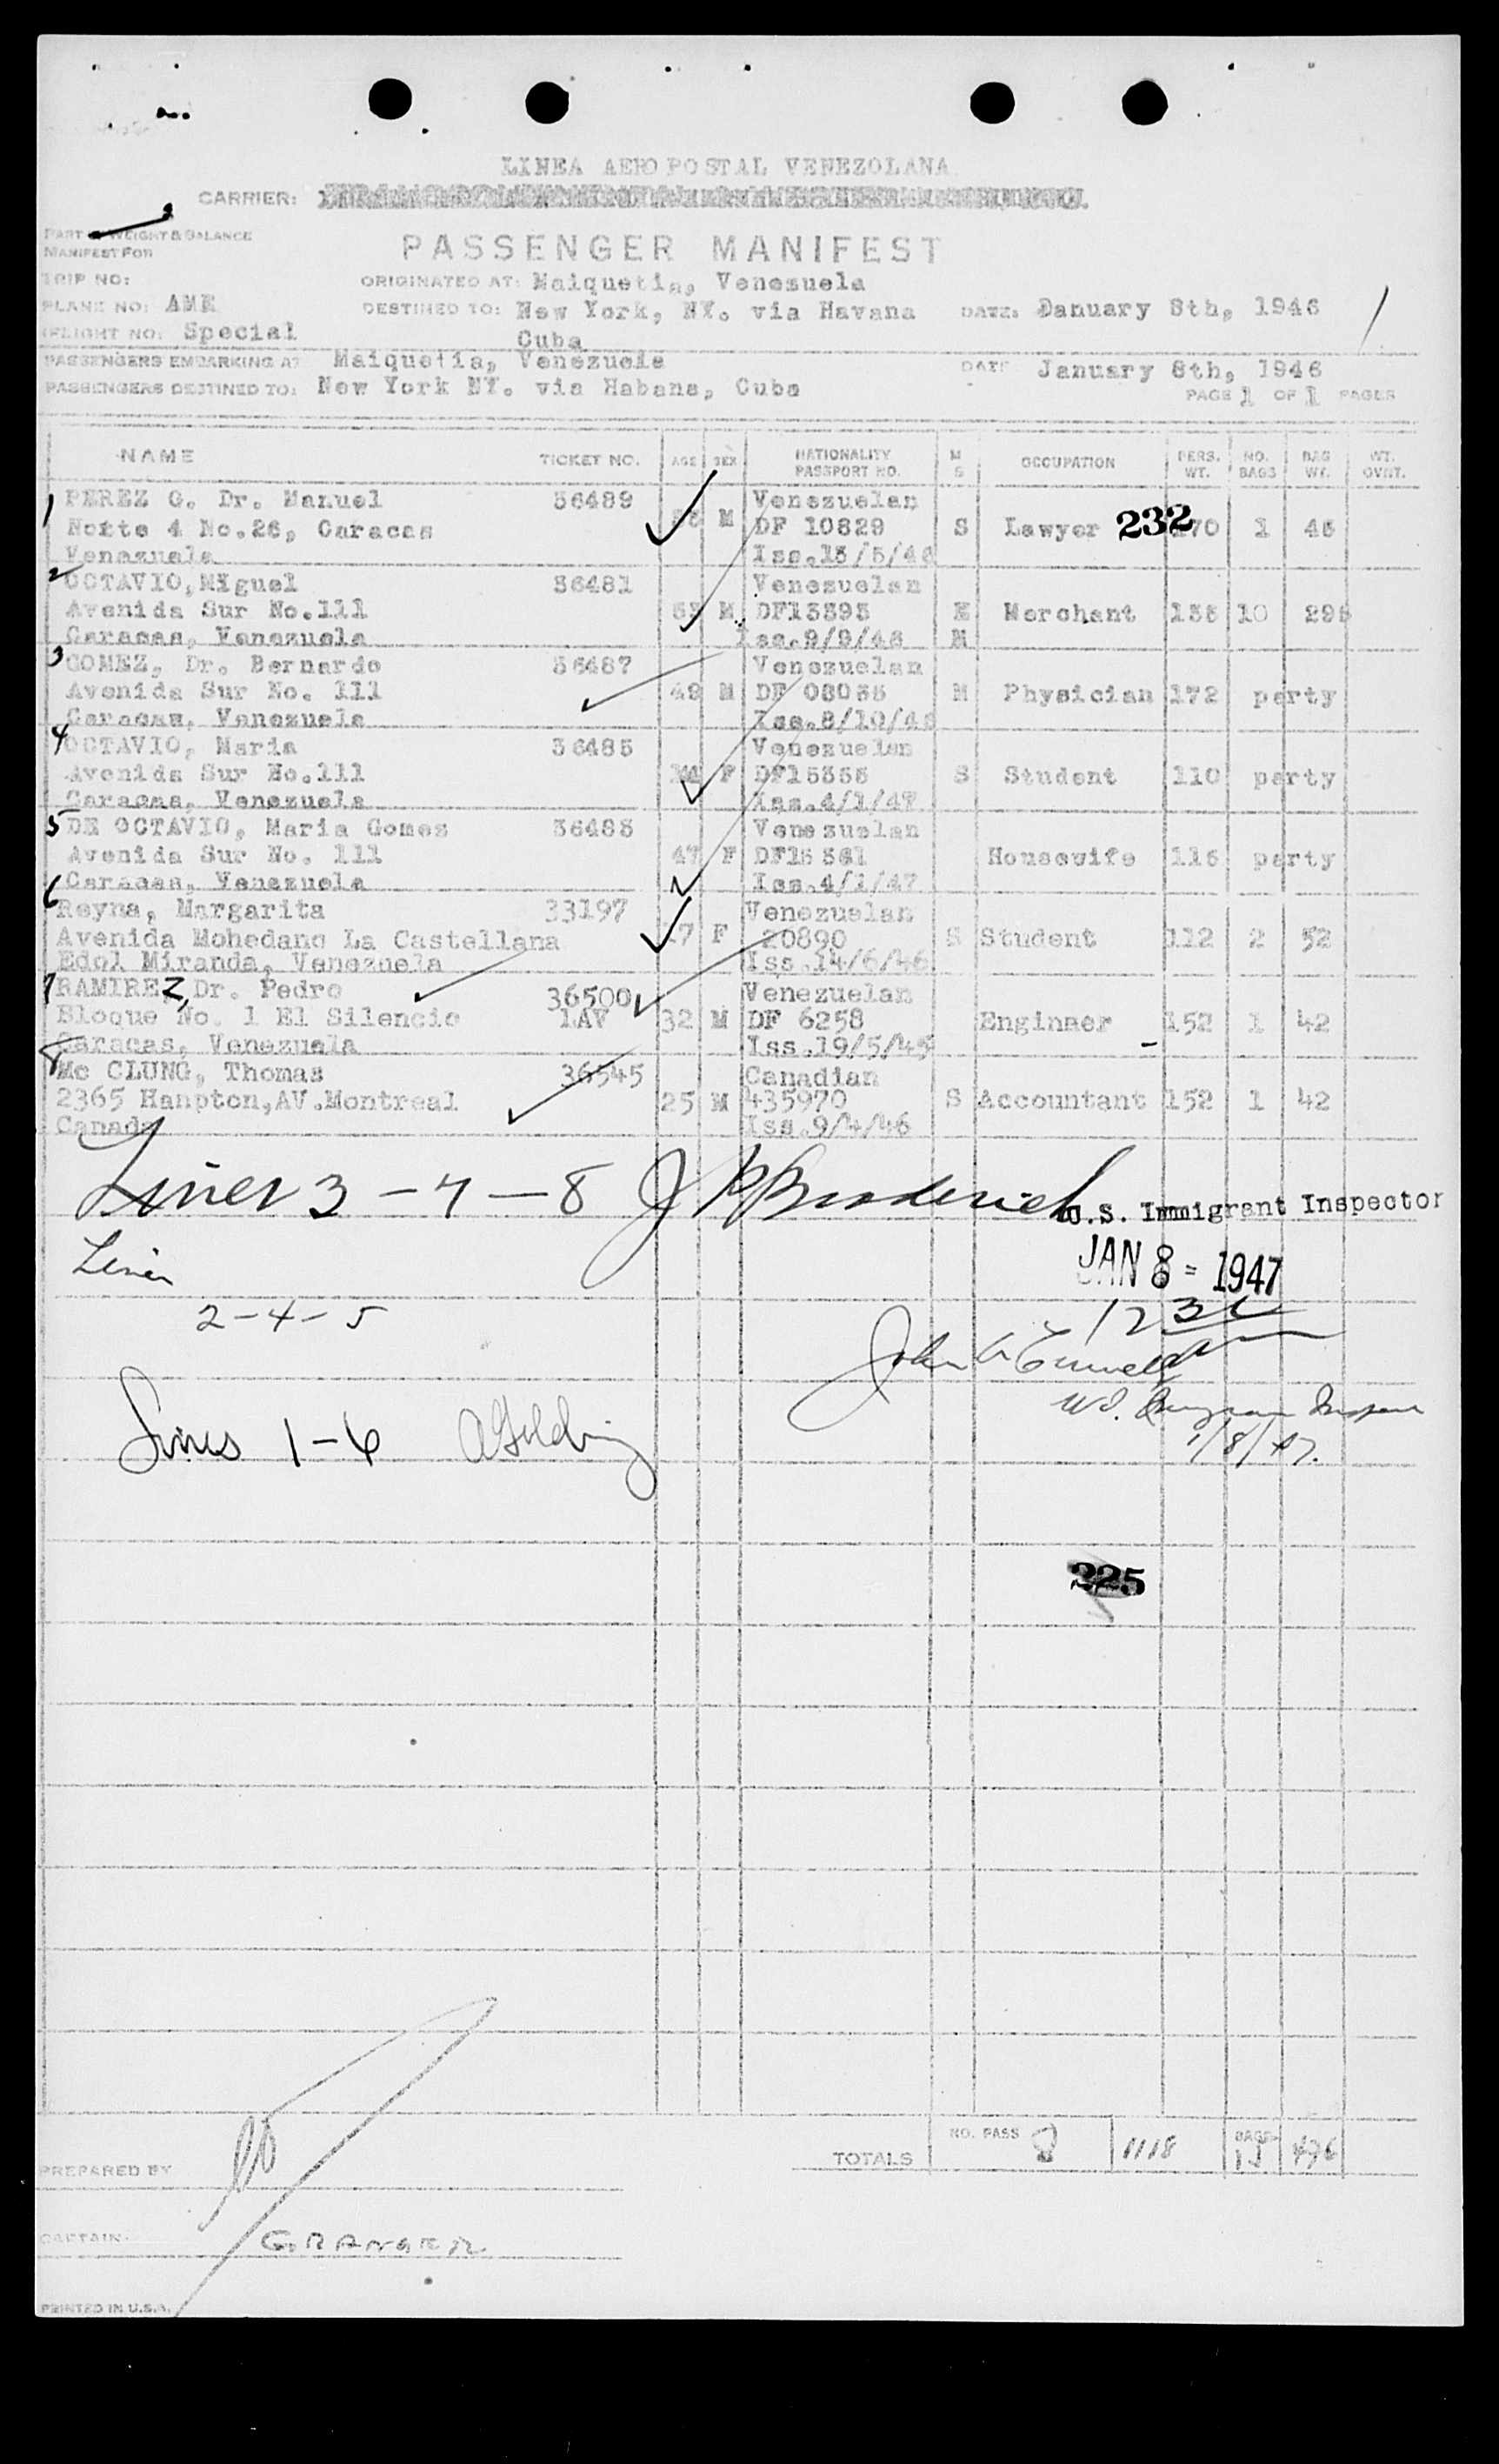 LINEA AEROPOSTAL VENEZOLANA
CARRIER:
PART WEIGHT & BALANCE
MANIFEST FOR
PASSENGER MANIFEST
TRIP NO: ORIGINATED AT: Maiquetia, Venesuela
PLANE NO: AME DESTINED TO: New York, NY. via Havana DATE: Danuary 8th, 1946
FLIGHT NO: Special Cuba
PASSENGERS EMBARKING AT Maiquetia, Venezuela DATE January 8th, 1946
PASSENGERS DESTINED TO: New York NY. via Habana, Cuba
PAGE 1 OF 1 PAGES
NAME TICKET NO. AGE SEX NATIONALITY PASSPORT NO. M S OCCUPATION PERS. WT. NO. BAGS BAG WT. WT. OVRT.
1 PEREZ G. Dr. Manuel 36489 Venezuelan
Norte 4 No.26, Caracas M DF 10829 S Lawyer 232 170 1 45
Venezuela Iss.13/5/46
2 OCTAVIO, Miguel 36481 Venezuelan
Avenida Sur No.111 53 M DF13393 Merchant 135 10 295
Caracas, Venezuela Iss.9/9/46 M
3 GOMEZ, Dr. Bernardo 36487 Venezuelan
Avenida Sur No. 111 49 M DF 08035 M Physician 172 party
Caracas, Venezuela Iss.8/10/45
4 OCTAVIO, Maria 36485 Venezuelan
Avenida Sur No.111 14 F DF15355 S Student 110 party
Caracas, Venezuela Iss.4/1/47
5 DE OCTAVIO, Maria Gomes 36483 Venezuelan
Avenida Sur No. 111 47 F DF15361 Housewife 115 party
Caracas, Venezuela Iss.4/1/47
6 Reyna, Margarita 33197 Venezuelan
Avenida Mohedano La Castellana 17 F 20890 S Student 112 2 52
Edol Miranda, Venezuela Iss.14/6/46
7 RAMIREZ, Dr. Pedro 36500 Venezuelan
Bloque No. 1 El Silencio LAV 32 M DF 6258 Enginaer 152 1 42
Caracas, Venezuela Iss.19/5/45
8 Mc CLUNG, Thomas 36545 Canadian
2365 Hanpton,AV.Montreal 25 M 435970 S Accountant 152 1 42
Canada Iss.9/4/46
Lines 3 - 7 - 8 J P Broderick U.S. Immigrant Inspector
JAN 8 - 1947
Lines
2-4-5
John
1/8/47.
Lines 1-6 A Golding
225
TOTALS NO. PASS 8 1118 BAGS 15 476
PREPARED BY
CAPTAIN: GRANGER
PRINTED IN U.S.A.